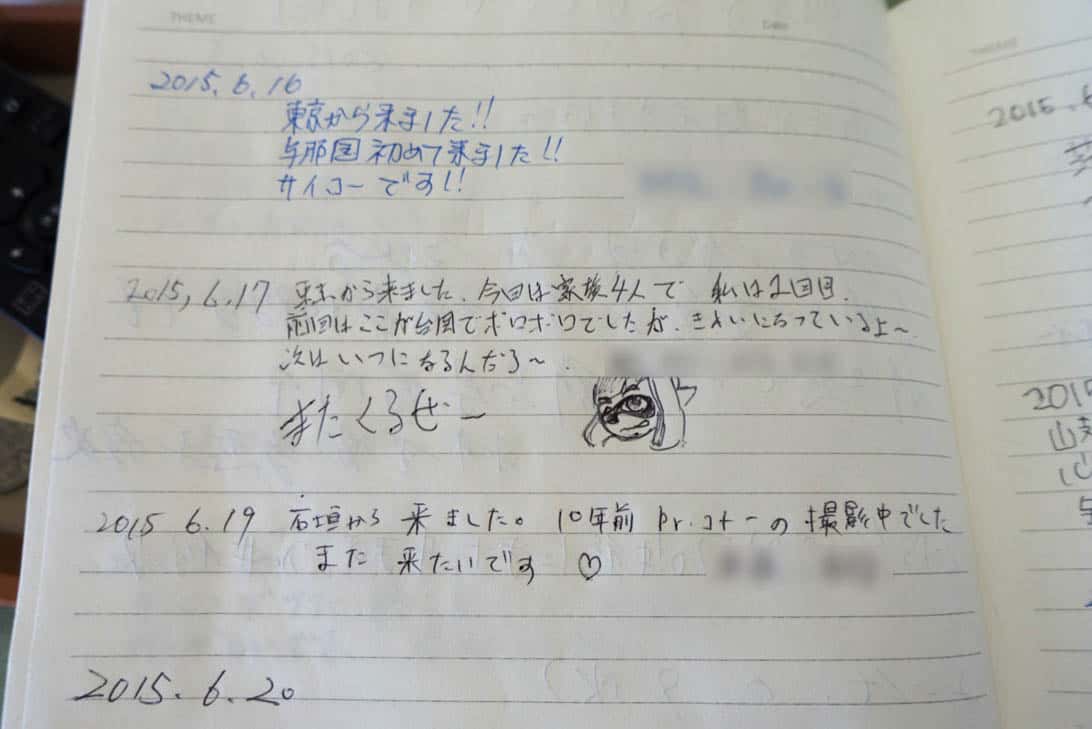 THEME
Date
2015.6.16
東京から来ました!!
与那国 初めて来ました!!
サイコーです!!
2015,6.17 東京から来ました、今回は家族4人で 私は2回目.
前回はここが台風でボロボロでしたが、きれいになっているよ〜
次はいつになるんだろ〜.
またくるぜー
2015 6.19 石垣から 来ました。 10年前 Dr.コトーの 撮影中でした
また 来たいです ♡
2015.6.20
THEME
2015.6
2015
山
心
与